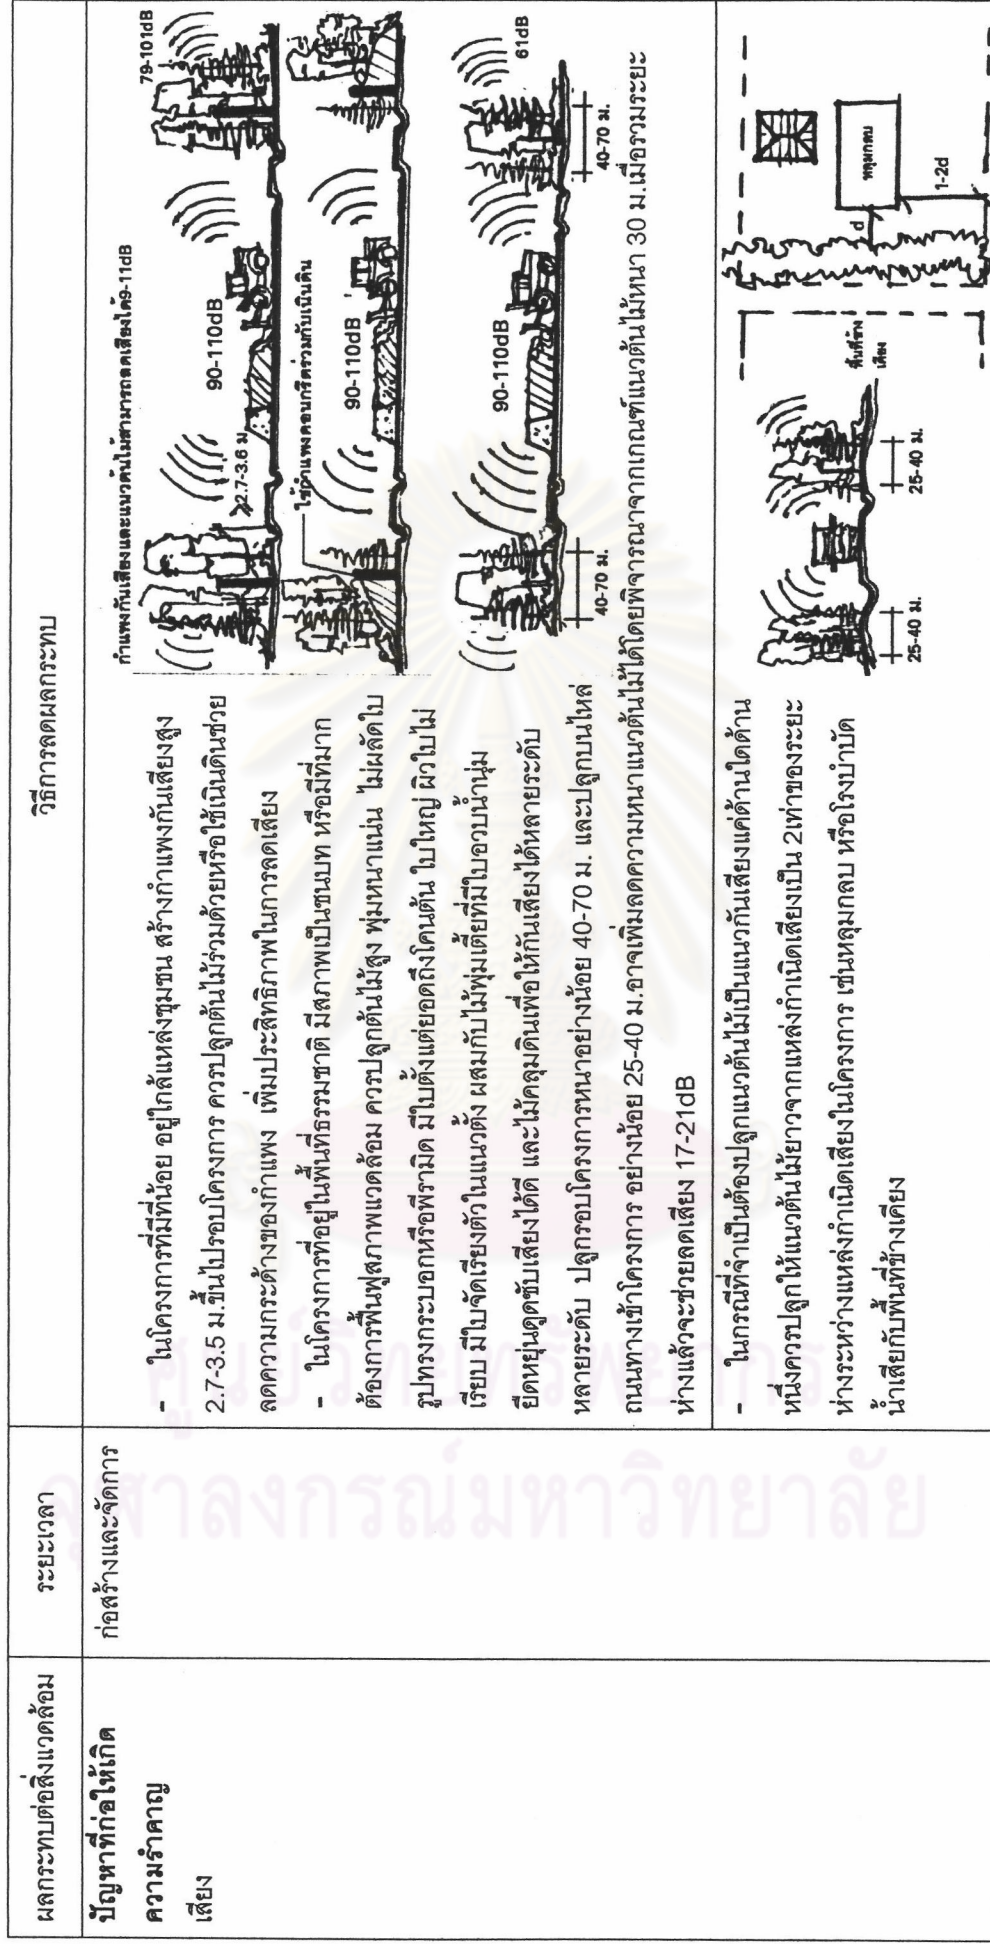 ผลกระทบต่อสิ่งแวดล้อม
ระยะเวลา
วิธีการลดผลกระทบ
ปัญหาที่ก่อให้เกิด
ความรำคาญ
เสียง
ก่อสร้างและจัดการ
- ในโครงการที่มีที่น้อย อยู่ใกล้แหล่งชุมชน สร้างกำแพงกันเสียงสูง
2.7-3.5 ม.ขึ้นไปรอบโครงการ ควรปลูกต้นไม้ร่วมด้วยหรือใช้เนินดินช่วย
ลดความกระด้างของกำแพง เพิ่มประสิทธิภาพในการลดเสียง
- ในโครงการที่อยู่ในพื้นที่ธรรมชาติ มีสภาพเป็นชนบท หรือมีที่มาก
ต้องการฟื้นฟูสภาพแวดล้อม ควรปลูกต้นไม้สูง พุ่มหนาแน่น ไม่ผลัดใบ
รูปทรงกระบอกหรือพีรามิด มีใบตั้งแต่ยอดถึงโคนต้น ใบใหญ่ ผิวใบไม่
เรียบ มีใบจัดเรียงตัวในแนวตั้ง ผสมกับไม้พุ่มเตี้ยที่มีใบอวบน้ำนุ่ม
ยืดหยุ่นดูดซับเสียงได้ดี และไม้คลุมดินเพื่อให้กันเสียงได้หลายระดับ
หลายระดับ ปลูกรอบโครงการหนาอย่างน้อย 40-70 ม. และปลูกบนไหล่
ถนนทางเข้าโครงการ อย่างน้อย 25-40 ม.อาจเพิ่มลดความหนาแนวต้นไม้ได้โดยพิจารณาจากเกณฑ์แนวต้นไม้หนา 30 ม.เมื่อรวมระยะ
ห่างแล้วจะช่วยลดเสียง 17-21dB
กำแพงกันเสียงและแนวต้นไม้สามารถลดเสียงได้9-11dB
79-101dB
90-110dB
2.7-3.6 ม
ใช้กำแพงคอนกรีตร่วมกับเนินดิน
90-110dB
90-110dB
61dB
40-70 ม.
40-70 ม.
- ในกรณีที่จำเป็นต้องปลูกแนวต้นไม้เป็นแนวกันเสียงแค่ด้านใดด้าน
หนึ่งควรปลูกให้แนวต้นไม้ยาวจากแหล่งกำเนิดเสียงเป็น 2เท่าของระยะ
ห่างระหว่างแหล่งกำเนิดเสียงในโครงการ เช่นหลุมกลบ หรือโรงบำบัด
น้ำเสียกับพื้นที่ข้างเคียง
25-40 ม.
25-40 ม.
พื้นที่ข้าง
เคียง
หลุมกลบ
d
1-2d
ศูนย์วิทยทรัพยากร
จุฬาลงกรณ์มหาวิทยาลัย